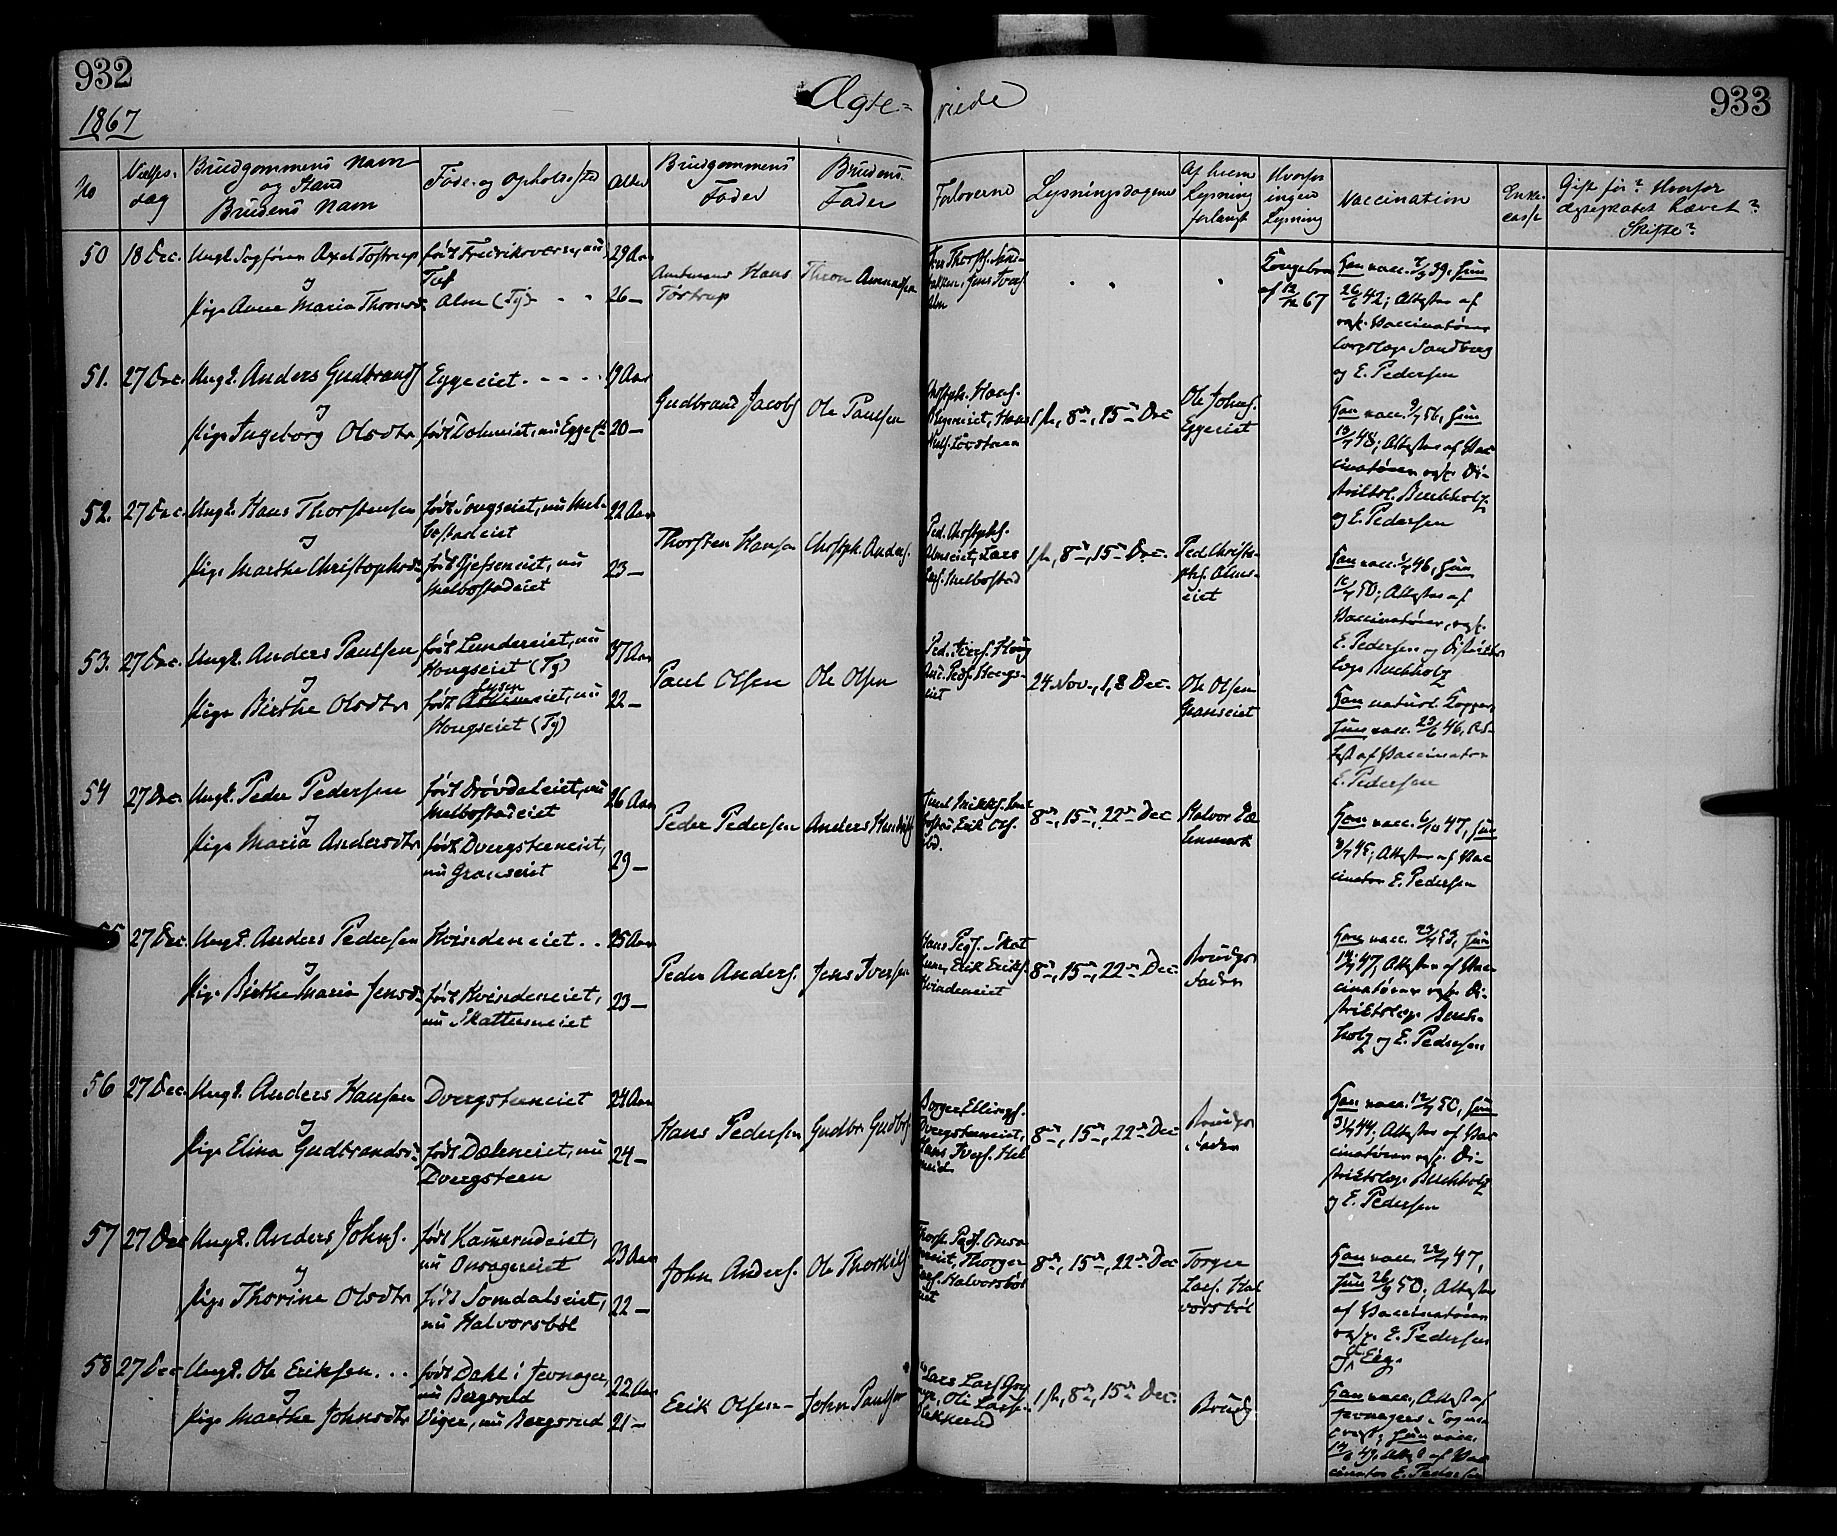 932
1867
Ægte-
viede
933
No
Vielses-
dag
Brudgommens Navn
og Stand
Brudens Navn
Føde- og Opholdssted
Alder
Brudgommens
Fader
Brudens
Fader
Forloverne
Lysningsdagene
Af hvem
Lysning
forlangt
Hvorfor
ingen
Lysning
Vaccination
Gift før? Hvorfor
Ægteskabet hævet?
Skifte?
50
18 Dec.
Ungk. Sagfører Axel Tostrup
og
Pige Anne Maria
født Fredriksværn, nu
Alm (Tg)
29 Aar
26 —
Hans
Tostrup
Kongebrev
af 12/12 67
Han vacc. 39, Hun
26/6 42; Attester af
Vaccinatører
Sandberg
og E. Pedersen
51.
27 Dec.
Ungk. Anders Gudbrands
og
Pige Ingeborg Olsdtr
Eggeeiet
født Dæhneiet, nu Egge
19 Aar
20 —
Gudbrand Jacobs
Ole Paulsen
1ste, 8de, 15de Dec
Ole Johns.
Eggeeiet
Han vacc. 56, Hun
48; Attester af Vac
cinatører, Di-
striktsl. Buchholz
og E. Pedersen
52.
27 Dec.
Ungk. Hans Thorstensen
og
Pige Marthe Christophersd
født nu Mel-
bostadeiet
født Gjefseneiet, nu
Melbostadeiet
22 Aar
23 —
Thorsten Hansen
Chrstph. Anders.
Ped. Chrstphs.
Almseiet, Lars
Melbostad
1ste, 8de, 15de Dec.
Ped. Christo-
phs. Alms-
eiet
Han vacc. 46, Hun
50; Attester af
Vaccinatører
E. Pedersen og Distrikts
læge Buchholz
53.
27 Dec.
Ungk. Anders Paulsen
og
Pige Birthe Olsdtr
født Lundereiet, nu
Hougseiet (Tg)
født Lysen nu
Hougseiet (Tg)
37 Aar
22 —
Paul Olsen
Ole Olsen
Ped. Ivers. Houg
And. Peds. Hougs-
eiet
24 Nov., 1, 8 Dec.
Ole Olsen
Granseiet
Han naturl. Kopper,
Hun vacc. 46, At-
test af Vaccinatør
E. Pedersen
54
27 Dec.
Ungk. Peder Pedersen
og
Pige Maria Andersdtr
født Brøvdaleiet, nu
Melbostadeiet
født Dvergsteneiet,
nu Granseiet
26 Aar
29 —
Peder Pedersen
Anders
8de, 15de, 22de Dec
Halvor
Lenmark
Han vacc. 47, Hun
45; Attester af Vac
cinatør E. Pedersen
55
27 Dec.
Ungk. Anders Pedersen
og
Pige Birthe Maria Jensd.
Hvindeneiet
født Hvindeneiet,
nu Skattumseiet
25 Aar
23 —
Peder Anders.
Jens Iversen
Hans Peds. Skat
tum, Erik Eriks.
Hvindeneiet
8de, 15de, 22de Dec.
Brudgs
Fader
Han vacc. 53, Hun
47, Attester af Vac
cinatører Di-
striktslæge Buch-
holz og E. Pedersen
56
27 Dec.
Ungk. Anders Hansen
og
Pige Elina Gudbrandsd.
Dvergsteneiet
født Dæleneiet, nu
Dvergsteen
24 Aar
24 —
Hans Pedersen
Gudbr. Gudbs
Borger Ellings.
Dvergsteneiet,
Hans Ivers.
8de, 15de, 22de Dec
Brudgs
Fader
Han vacc. 50, Hun
44; Attester af Vac
cinatører Di-
striktslæge Buchholz
og E. Pedersen
57
27 Dec
Ungk. Anders Johns.
og
Pige Thorine Olsdtr
født Kamerudeiet,
nu Onsageneiet
født Somdalseiet,
nu Halvorsbøl
23 Aar
22 —
John Anders.
Ole Thorkils
Halvorsbøl
eiet
8de, 15de, 22de Dec
Torger
Lars. Hal
vorsbøl
Han vacc. 47,
Hun 50; Attester
af Vaccinatører
E. Pedersen
og Eeg
58
27 Dec
Ungk. Ole Eriksen
og
Pige Marthe Johnsdtr
født Dahl i Jevnager,
nu Bergsrud
Viger, nu Bergsrud
22 Aar
21 —
Erik Olsen
John Paulsen
Lars Lars.
Ole Lars.
1ste, 8de, 15de Dec.
Brudg
Han vacc., Attest af
Jevnagers Sogne
prest; Hun vacc.
49, Attest af Vac
cinatør E. Pedersen